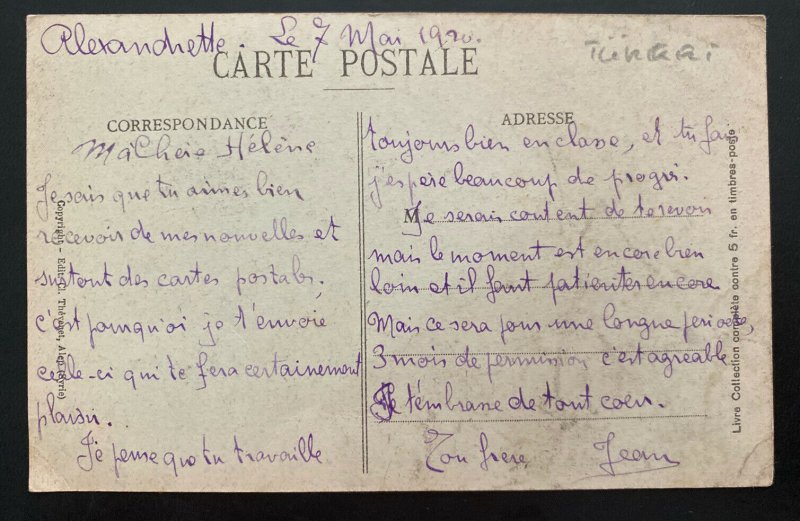 Alexandrette. Le 7 Mai 1920.
CARTE POSTALE
CORRESPONDANCE
Ma Cherie Hélène
Je sais que tu aimes bien
recevoir de mes nouvelles et
surtout des cartes postales.
c'est pourquoi je t'envoie
celle-ci qui te fera certainement
plaisir.
Je pense que tu travaille
ADRESSE
toujours bien en classe, et tu fais
j'espère beaucoup de progrè.
M
Je serais content de te revoir
mais le moment est encore bien
loin et il faut patienter encore
Mais ce sera pour une longue periode,
3 mois de permission c'est agreable
Je t'embrasse de tout coeur.
Ton frere Jean
Copyright - Edit. Cl. Thévenet, Alep (Syrie)
Livre Collection complète contre 5 fr. en timbres-poste